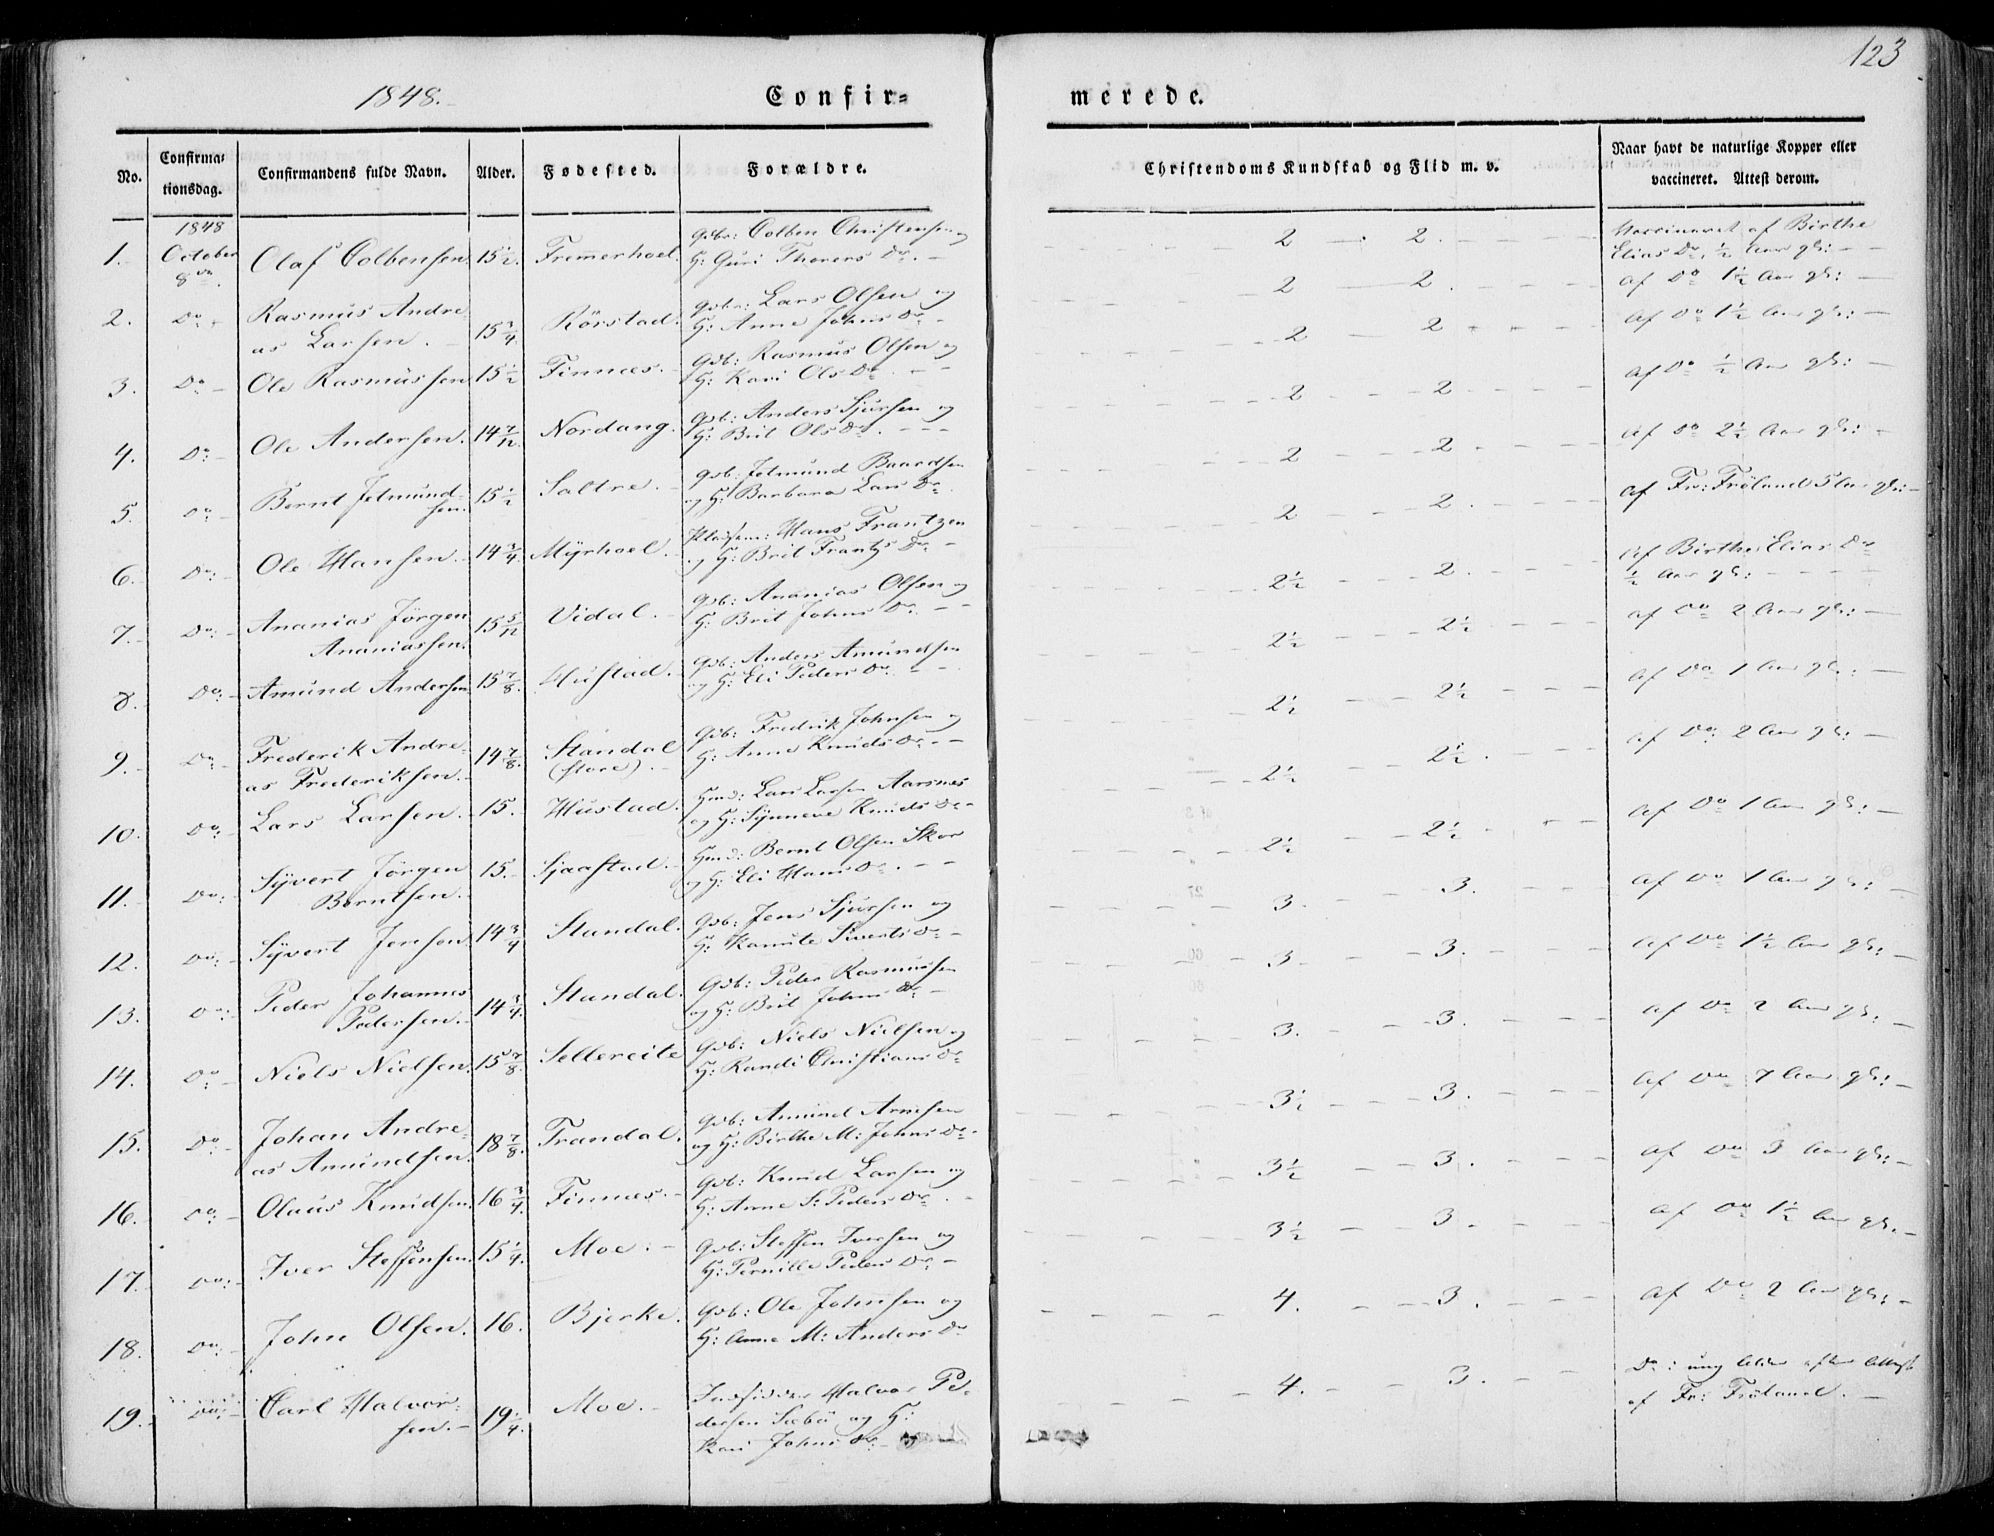 123
1848.
Confir=
merede.
No.
Confirma-
tionsdag.
Confirmandens fulde Navn.
Alder.
Fødested.
Forældre.
Christendoms Kundskab og Flid m. v.
Naar havt de naturlige Kopper eller
vaccineret. Attest derom.
1848
1. October 8de Olaf Colbensen 15 1/2. Tremmerhoel. Gdbr: Colben Christensen og
H: Guri Thorers Dr. 2 2. Vaccineret af Birthe
Elias Dr, 1/2 Aar gl:
2. Do Rasmus Andre-
as Larsen. 15 3/4. Rörstad. Gdbr: Lars Olsen og
H: Anne Johns Dr 2 2. af Do 1 1/2 Aar gl:
3. Do Ole Rasmussen 15 1/2 Finnes. Gdb: Rasmus Olsen og
H: Kari Ols Dr. 2 2 af Do 1 1/2 Aar gl:
4. Do: Ole Andersen. 14 7/12 Nordang. Gdb: Anders Sjursen og
H: Brit Ols Dr. 2 2 af Do 1/2 Aar gl:
5. Do Bernt Jetmund-
sen. 15 1/2 Saltre. Gdb: Jetmund Baardsen
og H: Barbara Lars Dr. 2 2 af Do 2 1/2 Aar gl:
6. Do: Ole Hansen. 14 3/4 Myrhoel. Pladsem: Hans Frantzen
og H: Brit Frantz Dr 2 2. af Fr: Fröland 5 Aar gl:
7. Do: Ananias Jörgen
Ananiassen. 15 5/12 Vidal. Gdb: Ananias Olsen og
H: Brit Johns Dr. 2 1/2 2. af Birthe Elias Dr
1/2 Aar gl:
8. Do: Amund Andersen 15 7/8. Hustad. Gdb: Anders Amundsen
og H: Eli Peders Dr. 2 1/2 2 1/2 af Do 2 Aar gl:
9. Do: Frederik Andre-
as Frederiksen. 14 7/8. Standal
(store). Gdb: Fredrik Johnsen og
H: Anne Knuds Dr. 2 1/2 2 1/2 af Do 1 Aar gl:
10. Do: Lars Larsen. 15. Hustad. Hmd: Lars Larsen Aarsnes
og H: Synneve Knuds Dr 2 1/2 2 1/2. af Do: 2 Aar gl:
11. Do: Syvert Jörgen
Berntsen. 15. Sjaastad. Hmd: Bernt Olsen Skor
og H: Eli Hans Dr. 2 1/2 2 1/2 af Do 1 Aar gl:
12. Do: Syvert Jensen 14 3/4 Standal. Gdb: Jens Sjursen og
H: Kanute Siverts Dr 3. 3. af Do 1 Aar gl:
13. Do: Peder Johannes
Pedersen. 14 3/4. Standal. Gdb: Peder Rasmussen
og H: Brit Johns Dr 3. 3. af Do 1 1/2 Aar gl:
14. Do: Niels Nielsen 15 7/8. Sellereite Gdb: Niels Nielsen og
H: Randi Christians Dr 3. 3. af Do 2 Aar gl:
15. Do: Johan Andre-
as Amundsen. 18 7/8. Trandal. Gdb: Amund Arnesen
og H: Birthe M: Johns Dr 3 1/2 3. af Do 7 Aar gl:
16. Do: Olaus Knudsen. 16 3/4. Finnes. Gdb: Knud Larsen og
H: Anne S: Peders Dr. 3 1/2 3. af Do 3 Aar gl:
17. Do: Iver Steffensen 15 1/4. Moe. Gdb: Steffen Iversen og
H: Pernille Peders Dr 3 1/2 3. af Do 1 1/2 Aar gl.
18. Do: John Olsen. 16. Bjerke. Gdb: Ole Johnsen og
H: Anne M: Anders Dr 4. 3. af Do 2 Aar gl:
19. Do: Carl Halvor-
sen. 19 1/4. Moe. Indsidder Halvor Pe-
dersen Sæbö og H:
Kari Johns Dr 4. 3. Do: ung Alder efter Attest
af Fr: Fröland.